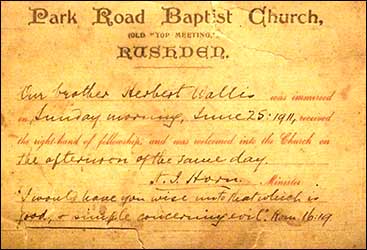 Park Road Baptist Church,
(OLD "TOP MEETING,")
RUSHDEN.
Our brother Herbert Wallis was immersed
on Sunday morning, June 25: 1911, received
the right-hand of fellowship, and was welcomed into the Church on
the afternoon of the same day.
Minister
"I would have you wise unto that which is
good, & simple concerning evil." Rom 16:19